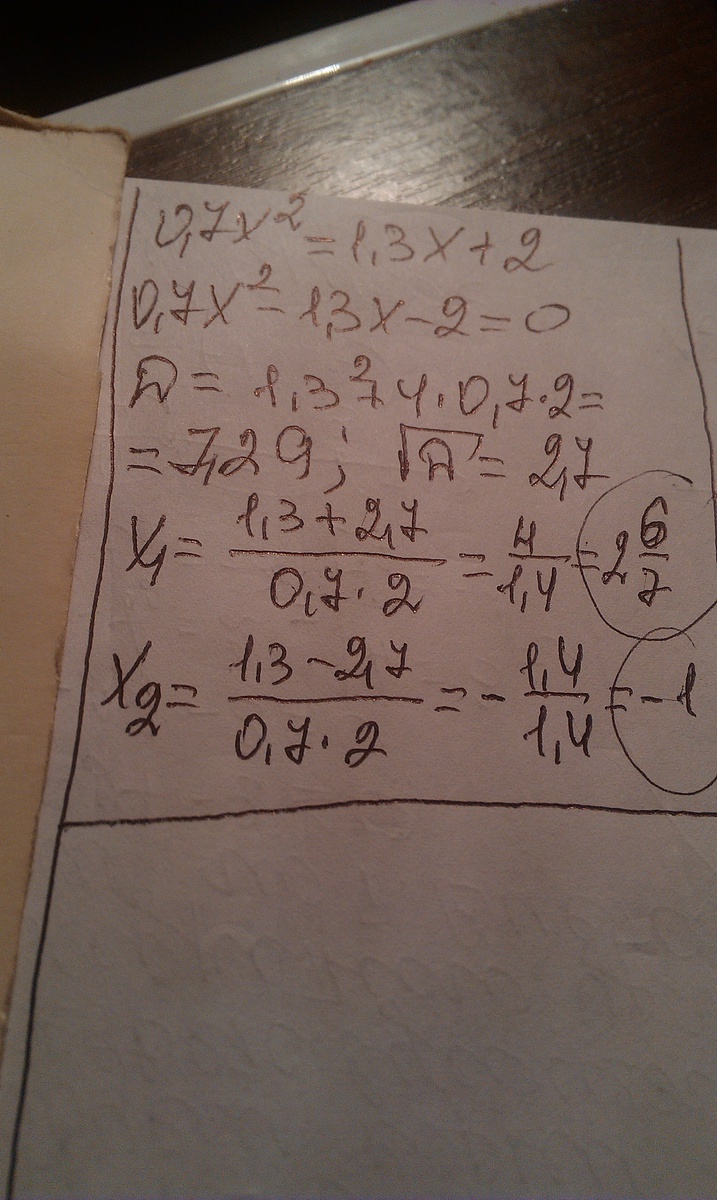 0,7x² = 1,3x + 2
0,7x² - 1,3x - 2 = 0
D = 1,3² + 4 · 0,7 · 2 =
= 7,29; √D = 2,7
x₁ = (1,3 + 2,7)/(0,7 · 2) = 4/1,4 = 2 6/7
x₂ = (1,3 - 2,7)/(0,7 · 2) = - 1,4/1,4 = -1